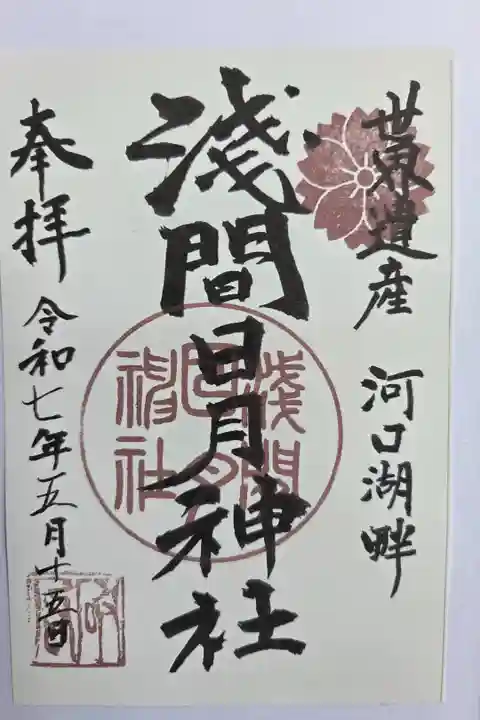 世界遺産 河口湖畔
浅間日月神社
浅間日月神社
奉拝 令和七年五月十五日